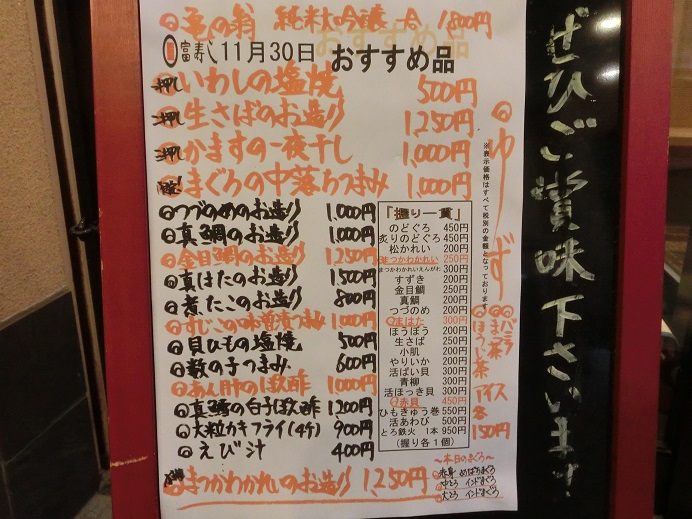 亀の翁 純米大吟醸 一合 1,800円
富寿し 11月30日 おすすめ品
押し いわしの塩焼 500円
押し 生さばのお造り 1,250円
押し かますの一夜干し 1,000円
まぐろの中落ちつまみ 1,000円
つづのめのお造り 1,000円
真鯛のお造り 1,000円
金目鯛のお造り 1,250円
真はたのお造り 1,500円
煮たこのお造り 800円
すじこの味噌漬つまみ 1,000円
貝ひもの塩焼 500円
数の子つまみ 600円
あん肝のぽん酢 1,000円
真鱈の白子ぽん酢 1,200円
大粒カキフライ(4ケ) 900円
えび汁 400円
まつかわかれいのお造り 1,250円
「握り一貫」
のどぐろ 450円
炙りのどぐろ 450円
松かれい 200円
生まつかわかれい 250円
まつかわかれいえんがわ 300円
すずき 200円
金目鯛 200円
真鯛 200円
つづのめ 200円
生まはた 300円
ほうぼう 200円
生さば 200円
小肌 200円
やりいか 200円
活ばい貝 300円
青柳 300円
活ほっき貝 300円
赤貝 450円
ひもきゅう巻 550円
活あわび 500円
とろ鉄火 1本 950円
(握り各1個)
※表示価格はすべて税別の金額となっております
ゆず
バニラ
抹茶
ほうじ茶
アイス
各
150円
〜本日のまぐろ〜
赤身 めばちまぐろ
中とろ インドまぐろ
大とろ インドまぐろ
ぜひご賞味下さいませ